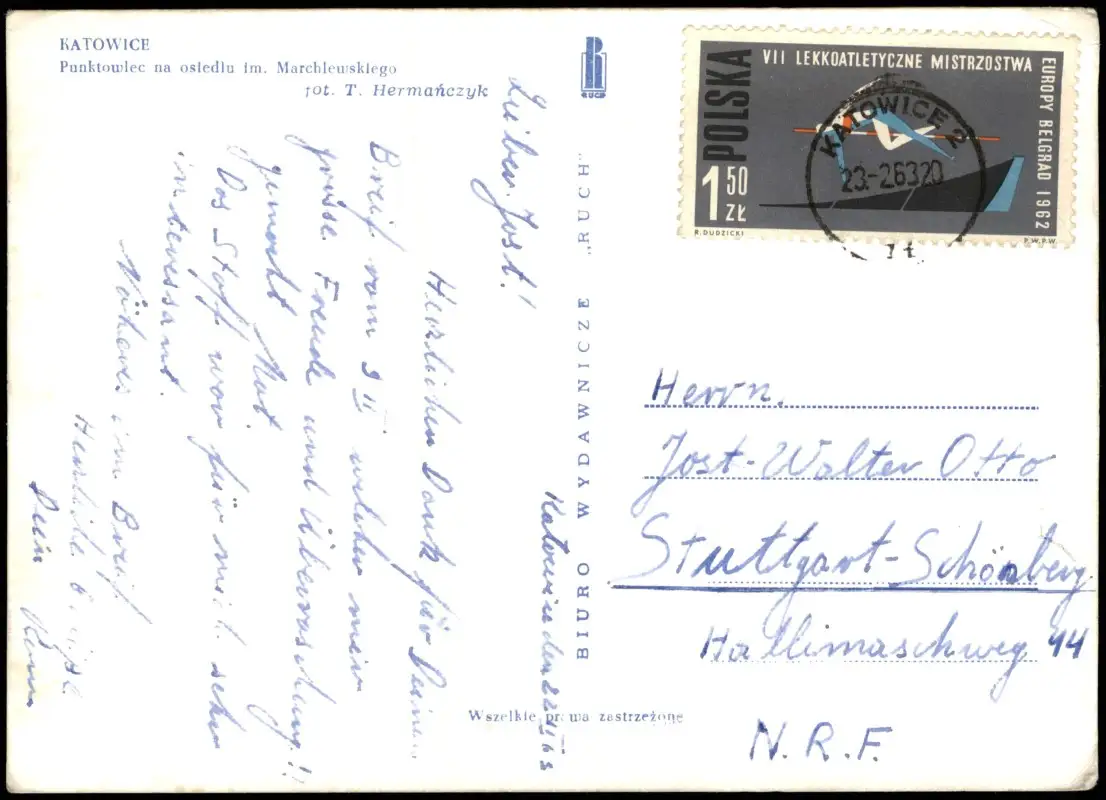 KATOWICE
Punktowiec na osiedlu im. Marchlewskiego
fot. T. Hermańczyk
RUCH
BIURO WYDAWNICZE "RUCH"
Wszelkie prawa zastrzeżone
Katowice den 22 II 63
Lieber Jost!
Herzlichen Dank für Deinen
Breif vom 9 II welcher mein
grosse Freude und Überraschung!!
gemacht hat
Das Stoff war für mich sehr
interessant.
Näheres im Breif.
Herzliche
Dein
POLSKA
VII LEKKOATLETYCZNE MISTRZOSTWA
EUROPY BELGRAD 1962
1 50 ZŁ
R. DUDZICKI
P.W.P.W.
KATOWICE 2
23.-2.63 20
Herrn.
Jost-Walter Otto
Stuttgart-Schönberg
Hallimaschweg 44
N.R.F.